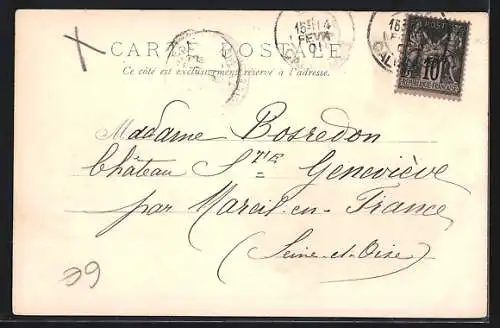 CARTE POSTALE
Ce côté est exclusivement réservé à l'adresse.
15E 14
FEVR
01
10
Madame Bosredon
Château STE Geneviève
par Mareil-en-France
(Seine-et-Oise)